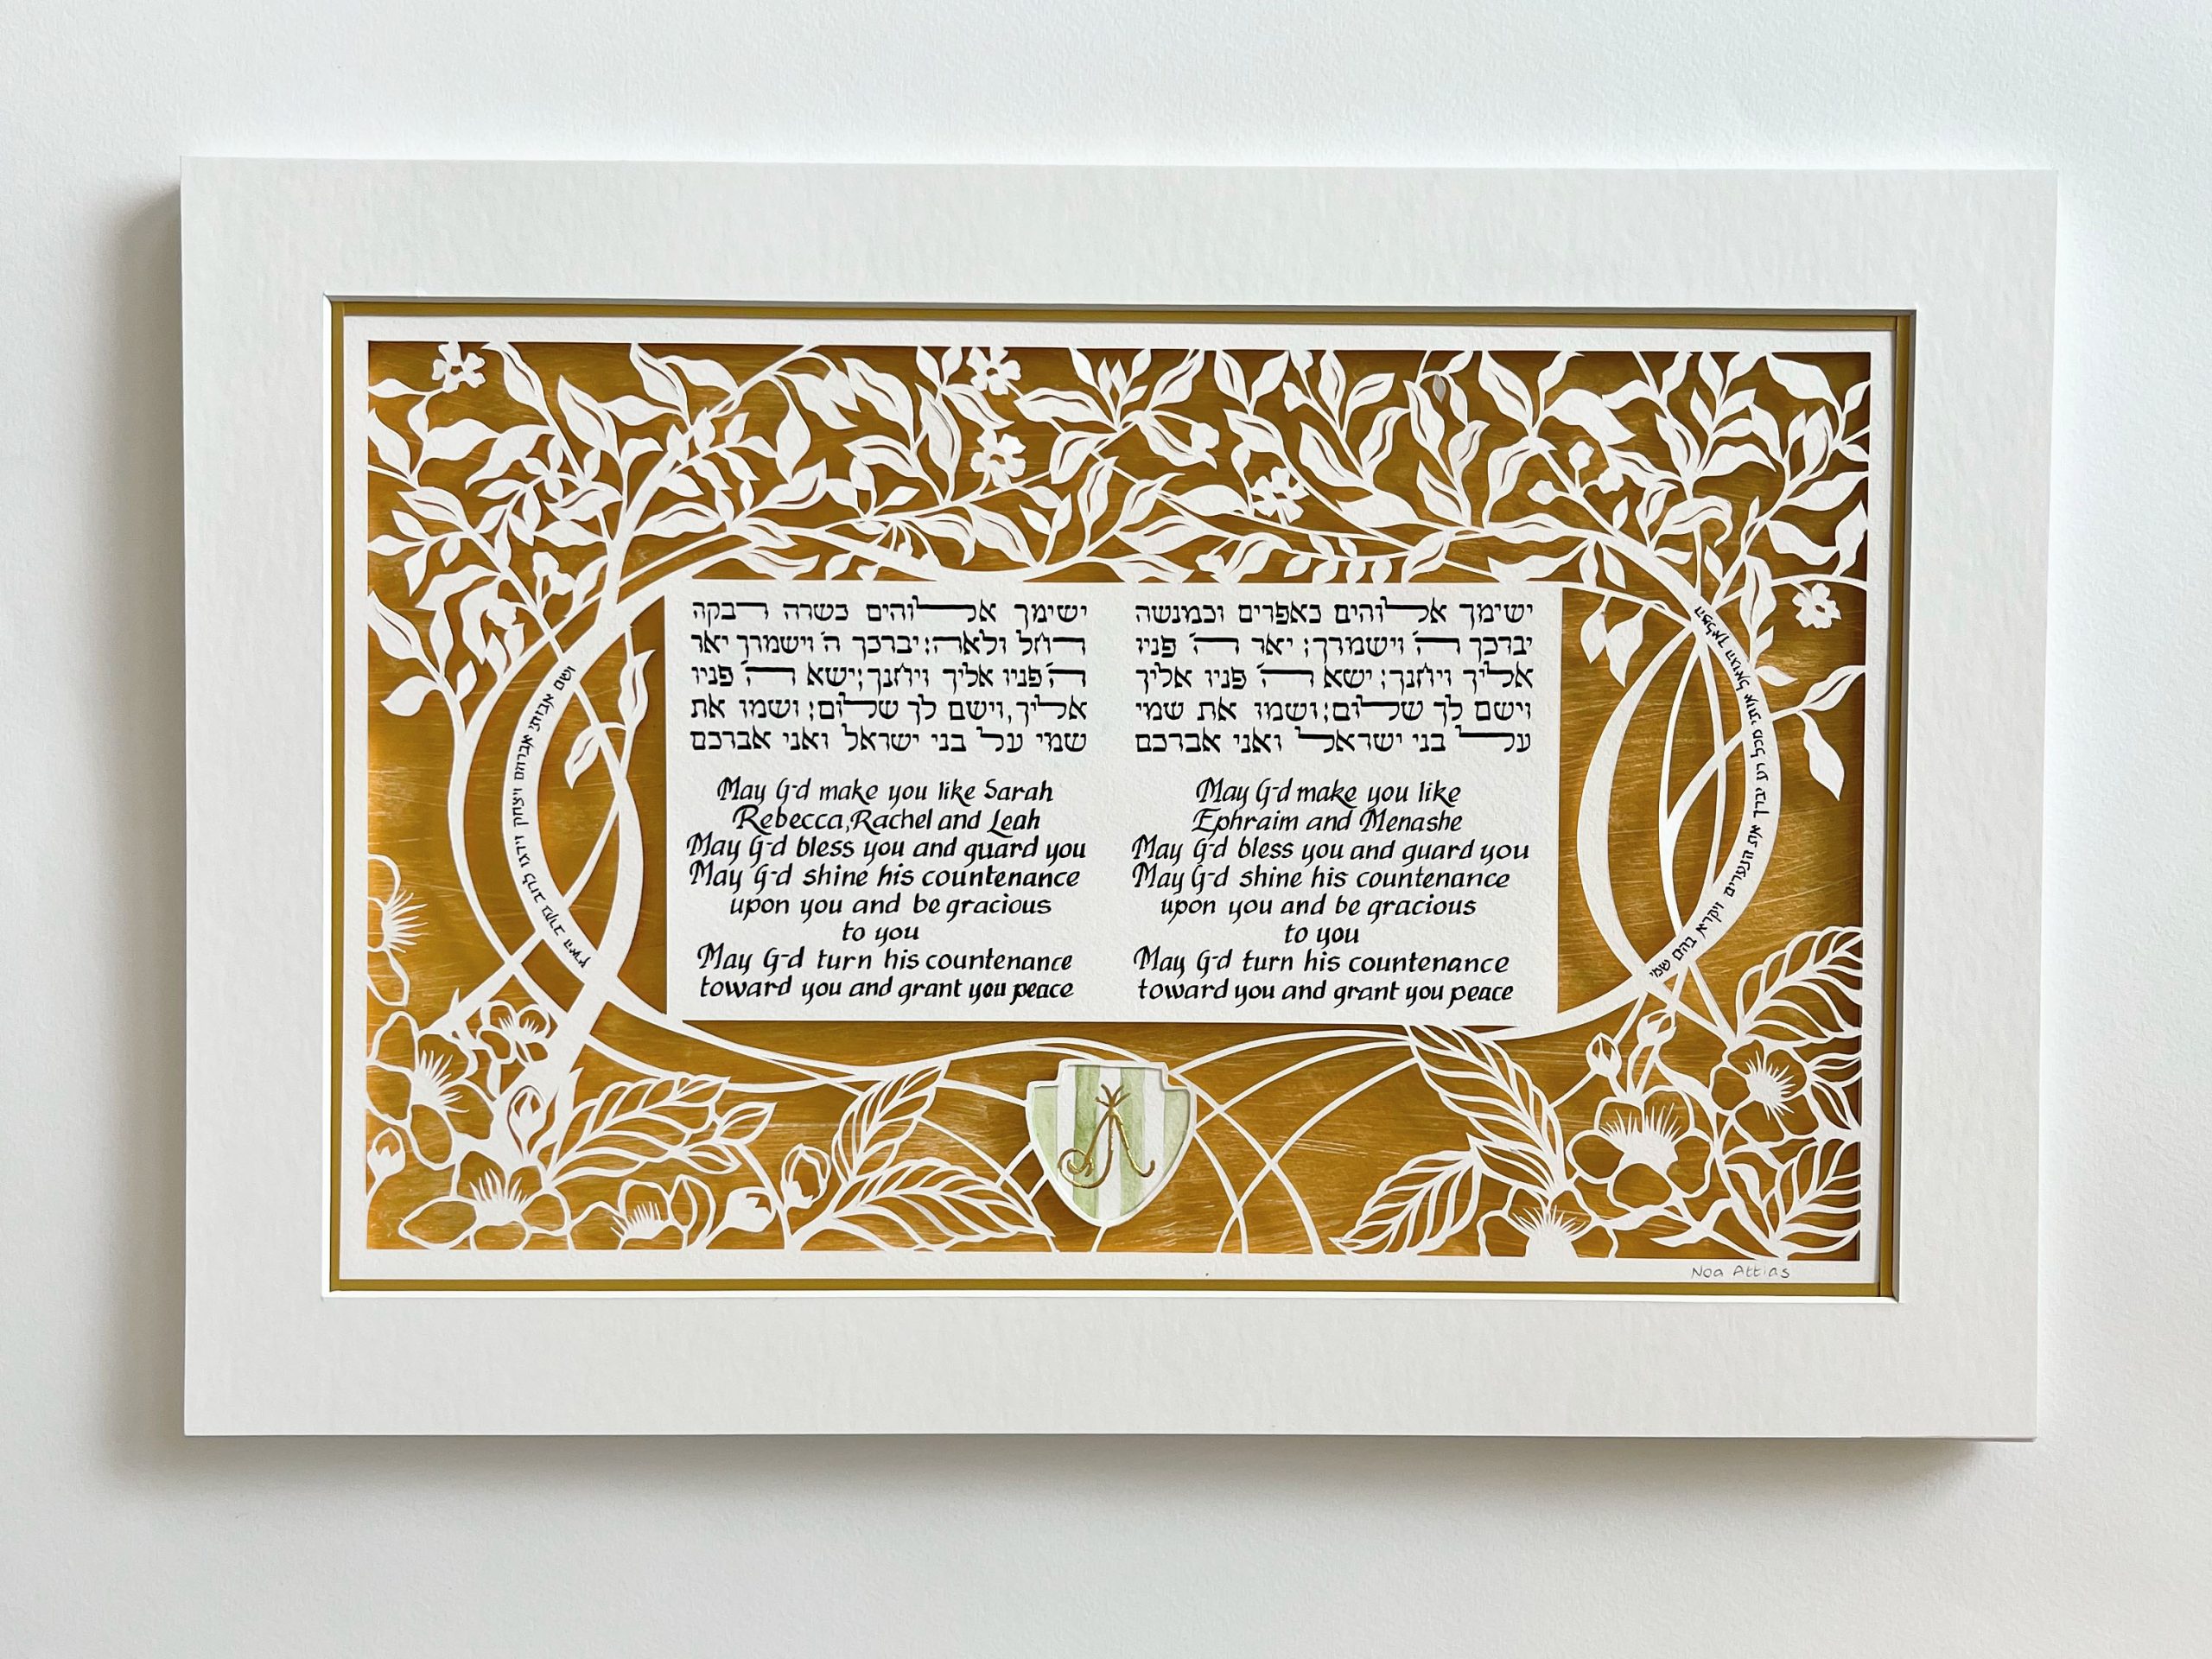 ישימך אלוהים כאפרים וכמנשה
יברכך ה' וישמרך; יאר ה' פניו
אליך ויחנך; ישא ה' פניו אליך
וישם לך שלום; ושמו את שמי
על בני ישראל ואני אברכם
ישימך אלוהים כשרה רבקה
רחל ולאה; יברכך ה' וישמרך יאר
ה' פניו אליך ויחנך; ישא ה' פניו
אליך, וישם לך שלום; ושמו את
שמי על בני ישראל ואני אברכם
May G-d make you like Sarah
Rebecca, Rachel and Leah
May G-d bless you and guard you
May G-d shine his countenance
upon you and be gracious
to you
May G-d turn his countenance
toward you and grant you peace
May G-d make you like
Ephraim and Menashe
May G-d bless you and guard you
May G-d shine his countenance
upon you and be gracious
to you
May G-d turn his countenance
toward you and grant you peace
המלאך הגואל אותי מכל רע יברך את הנערים ויקרא בהם שמי
ושם אבותי אברהם ויצחק וידגו לרוב בקרב הארץ
A
Noa Attias